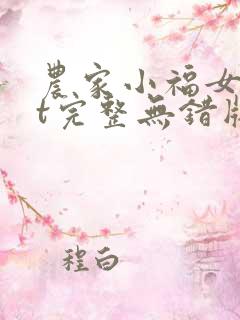 農家小福女
t完整無錯版
程白